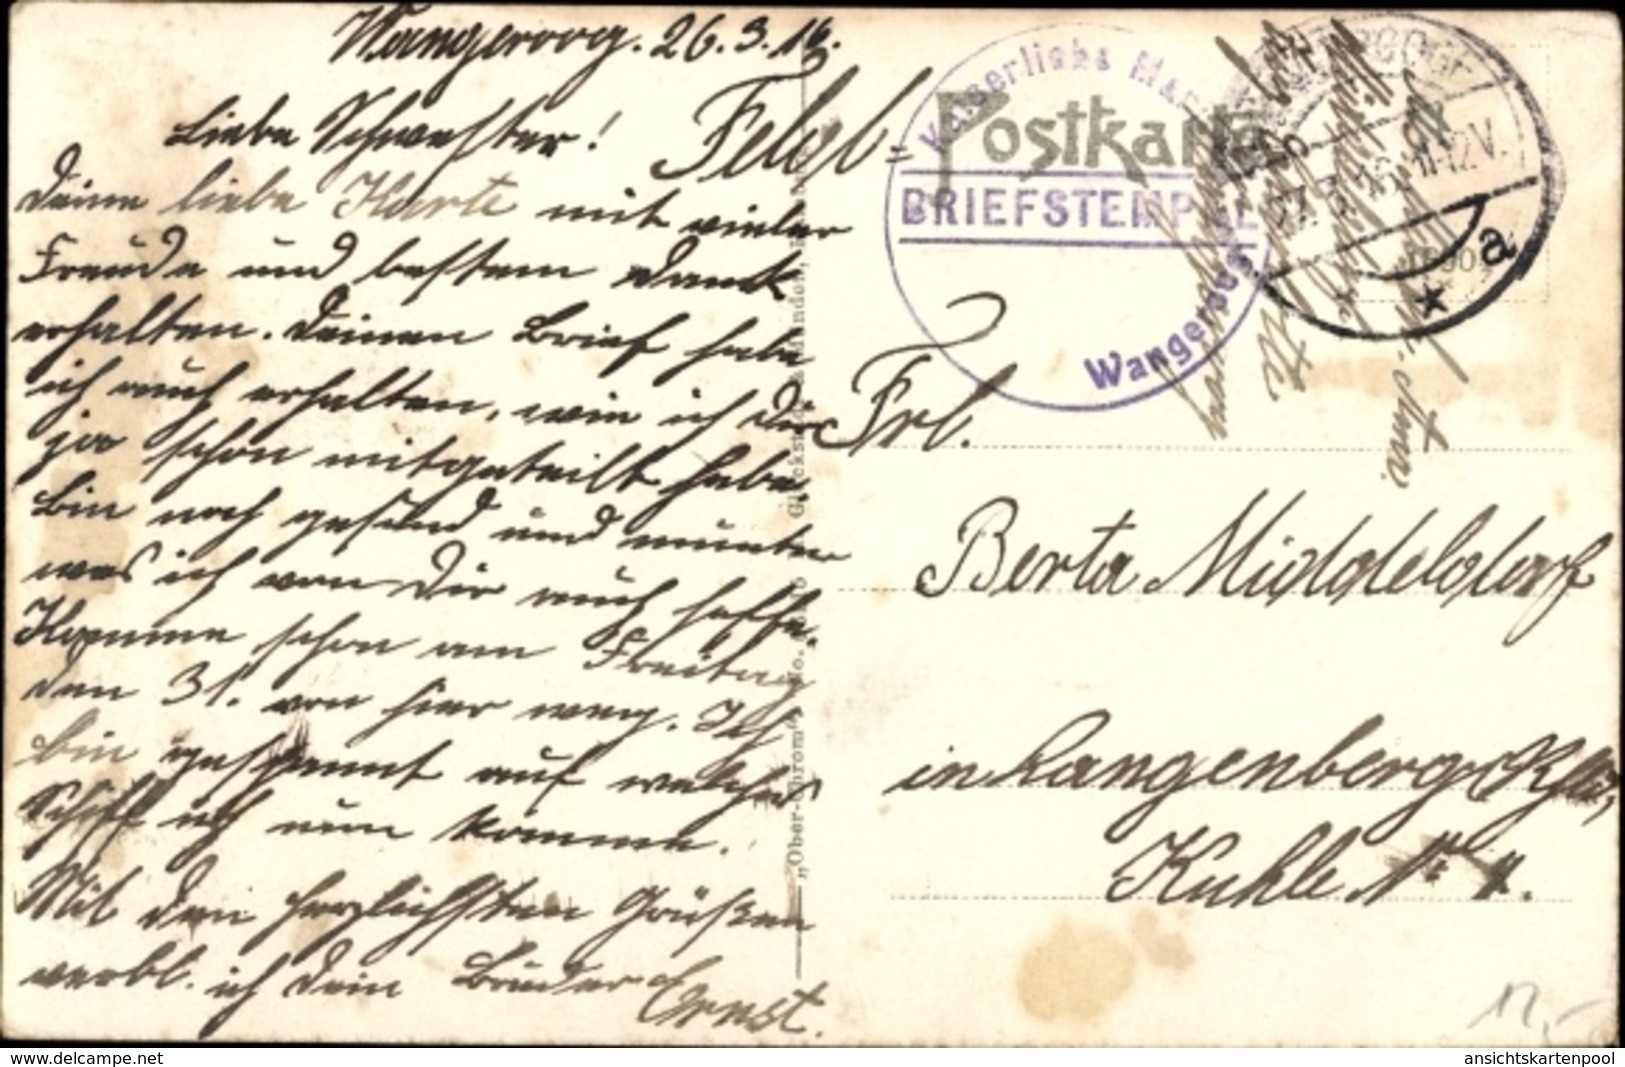 Wangeroog. 26.3.16.
Liebe Schwester!
Deine liebe Karte mit vieler
Freude und bestem Dank
erhalten. Deinen Brief habe
ich auch erhalten, wie ich Dir
ja schon mitgeteilt habe.
Bin noch gesund und munter
was ich von Dir auch hoffe.
Komme schon am Freitag
den 31. von hier weg. Ich
bin gespannt auf welches
Schiff ich nun komme.
Mit den herzlichsten Grüßen
verbl. ich Dein Bruder Ernst.
Feld=
Postkarte
Kaiserliche Mar
BRIEFSTEMPEL
Wangeroog
11-12 V.
a
Frl.
Berta Middeldorf
in Langenberg (Rhld),
Kuhle No
12,-
ansichtskartenpool
https://www.delcampe.net